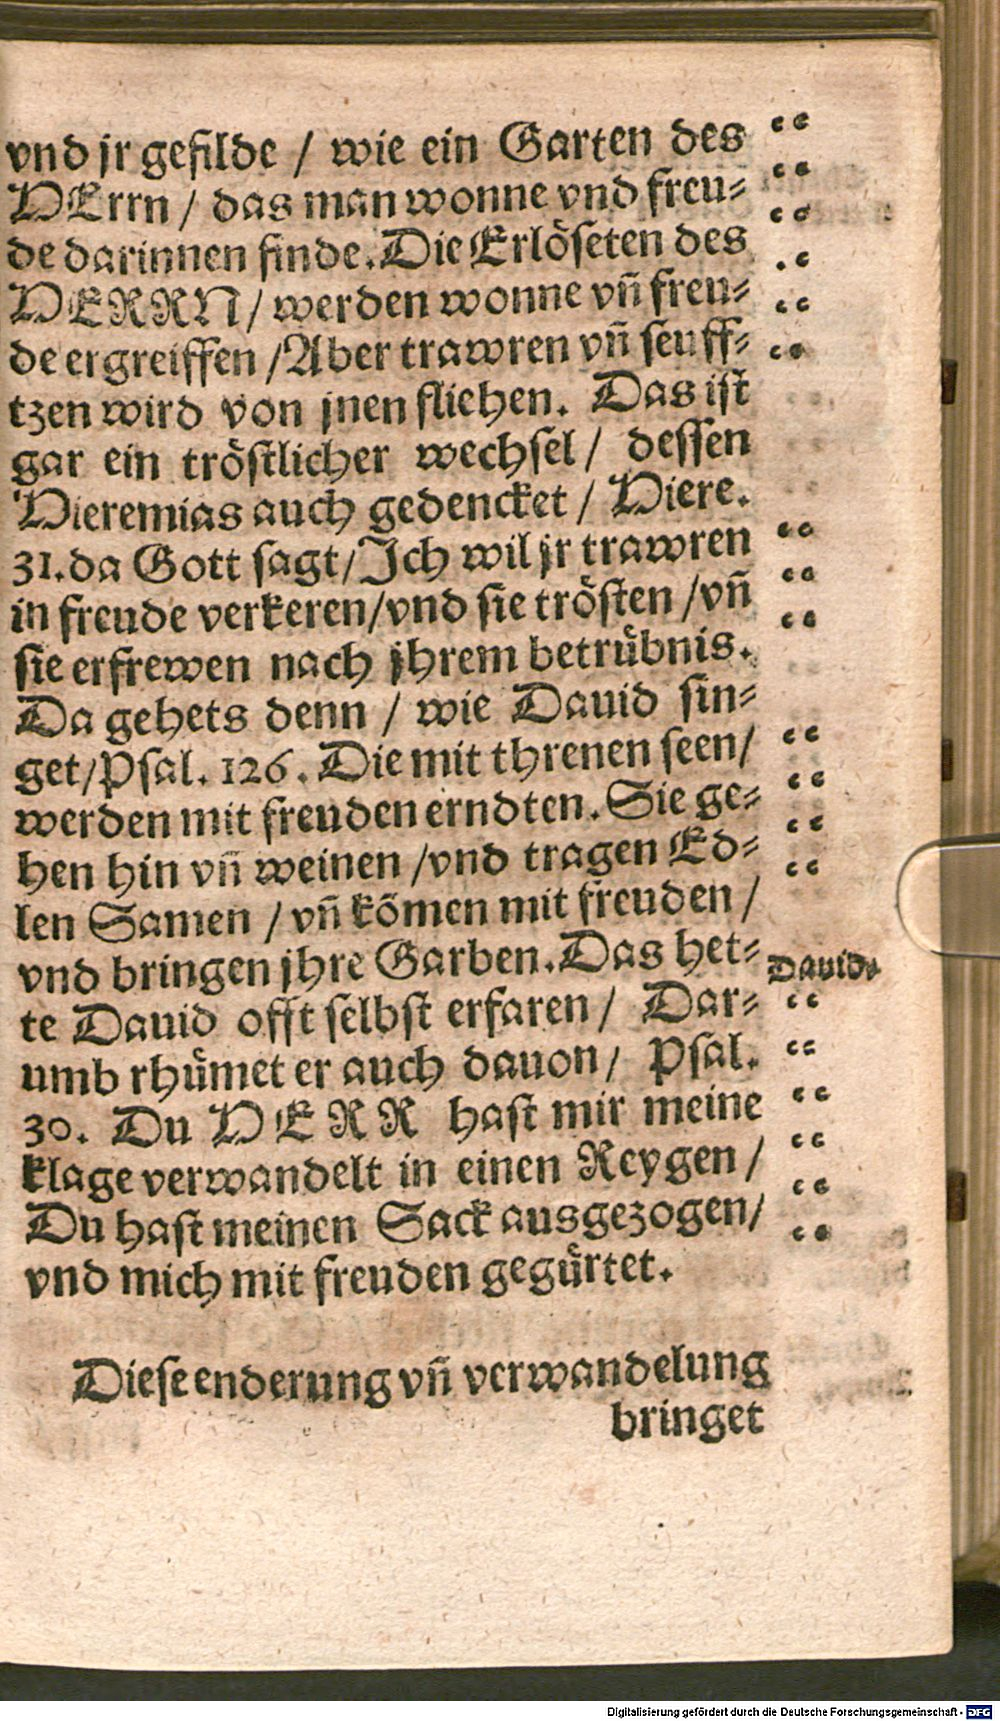 vnd jr gefilde / wie ein Garten des “
HErrn / das man wonne vnd freu⸗ “
de darinnen finde. Die Erlöseten des “
HERRN / werden wonne vñ freu⸗ “
de ergreiffen / Aber trawren vñ seuff⸗ “
tzen wird von jnen fliehen. Das ist “
gar ein tröstlicher wechsel / dessen
Hieremias auch gedencket / Hiere.
31. da Gott sagt / Ich wil jr trawren “
in freude verkeren / vnd sie trösten / vñ “
sie erfrewen nach jhrem betrübnis. “
Da gehets denn / wie Dauid sin⸗
get / Psal. 126. Die mit threnen seen / “
werden mit freuden erndten. Sie ge⸗ “
hen hin vñ weinen / vnd tragen Ed⸗ “
len Samen / vñ kõmen mit freuden / “
vnd bringen jhre Garben. Das het⸗
Dauid.
te Dauid offt selbst erfaren / Dar⸗ “
umb rhümet er auch dauon / Psal. “
30. Du HERR hast mir meine “
klage verwandelt in einen Reygen / “
Du hast meinen Sack ausgezogen / “
vnd mich mit freuden gegürtet. “
Diese enderung vñ verwandelung
bringet
Digitalisierung gefördert durch die Deutsche Forschungsgemeinschaft - DFG